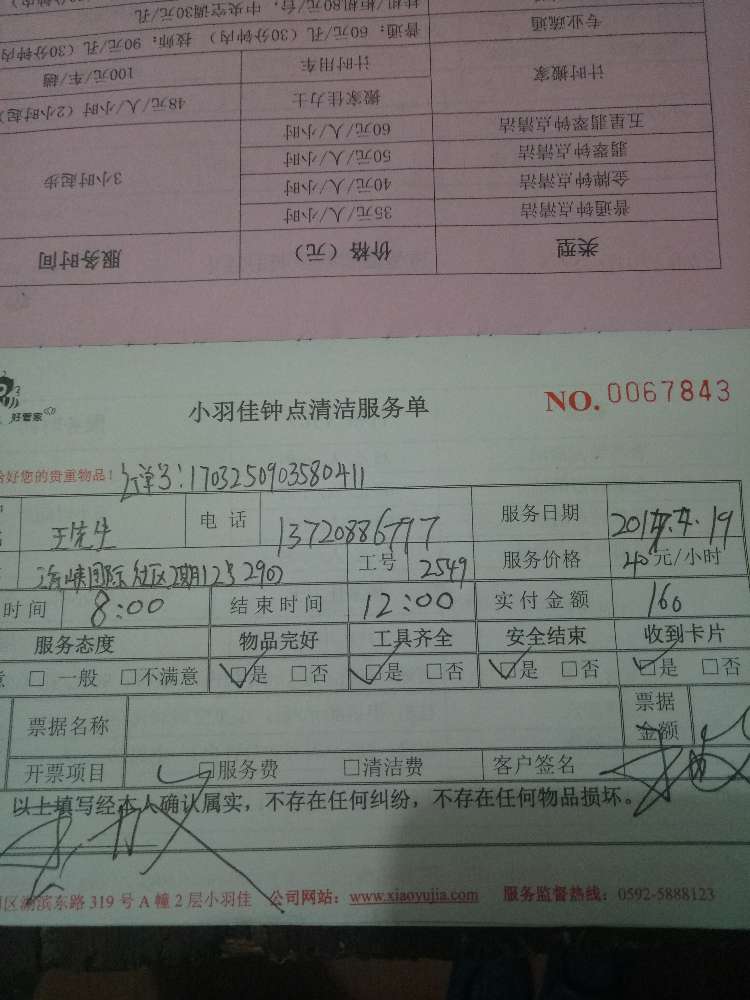 类型 价格（元） 服务时间
普通钟点清洁 35元/人/小时
金牌钟点清洁 40元/人/小时 3小时起步
翡翠钟点清洁 50元/人/小时
五星翡翠钟点清洁 60元/人/小时
计时搬家 搬家佳力士 48元/人/小时（2小时起
计时用车 100元/车/趟
专业疏通 普通：60元/孔（30分钟内） 技师：90元/孔（30分钟内
挂机/柜机80元/台，中央空调30元/孔
好管家
小羽佳钟点清洁服务单 NO. 0067843
好您的贵重物品！ 订单号：1703250903580411
王先生 电话 13720886797 服务日期 2017.4.19
海峡国际社区2期12号2902 工号 2549 服务价格 40元/小时
时间 8:00 结束时间 12:00 实付金额 160
服务态度 物品完好 工具齐全 安全结束 收到卡片
□ 一般 □不满意 □是 □否 □是 □否 □是 □否 □是 □否
票据名称 票据金额
开票项目 □服务费 □清洁费 客户签名
以上填写经本人确认属实，不存在任何纠纷，不存在任何物品损坏。
区湖滨东路 319 号 A 幢 2 层小羽佳 公司网站：www.xiaoyujia.com 服务监督热线：0592-5888123